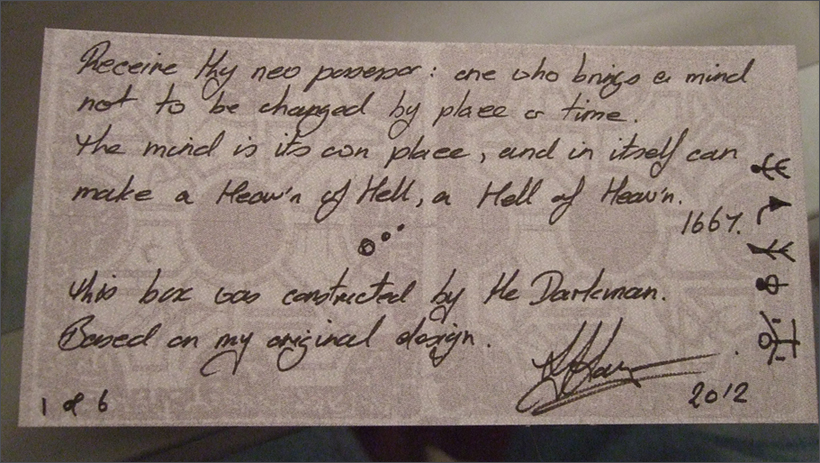 Receive thy new possessor: one who brings a mind
not to be changed by place or time.
The mind is its own place, and in itself can
make a Heav'n of Hell, a Hell of Heav'n.
1667.
This box was constructed by the Darkman.
Based on my original design.
2012
1 of 6